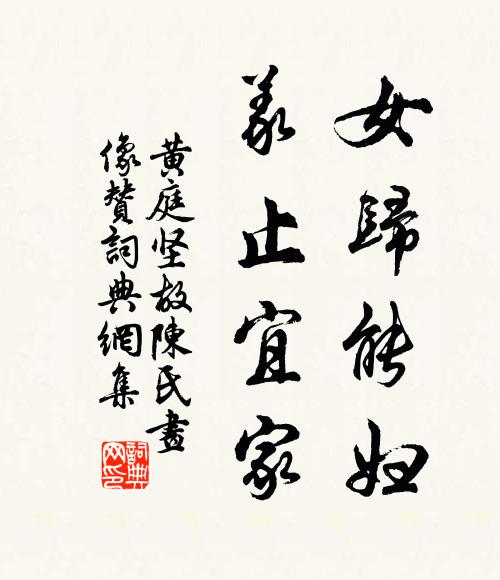 女歸能婦
義止宜家
黄庭坚故陳氏畫
像贊詞典網集
詞典
网印